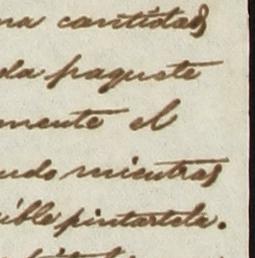 na cantidad
da paquete
mente el
udo mientras
ible pintartela.